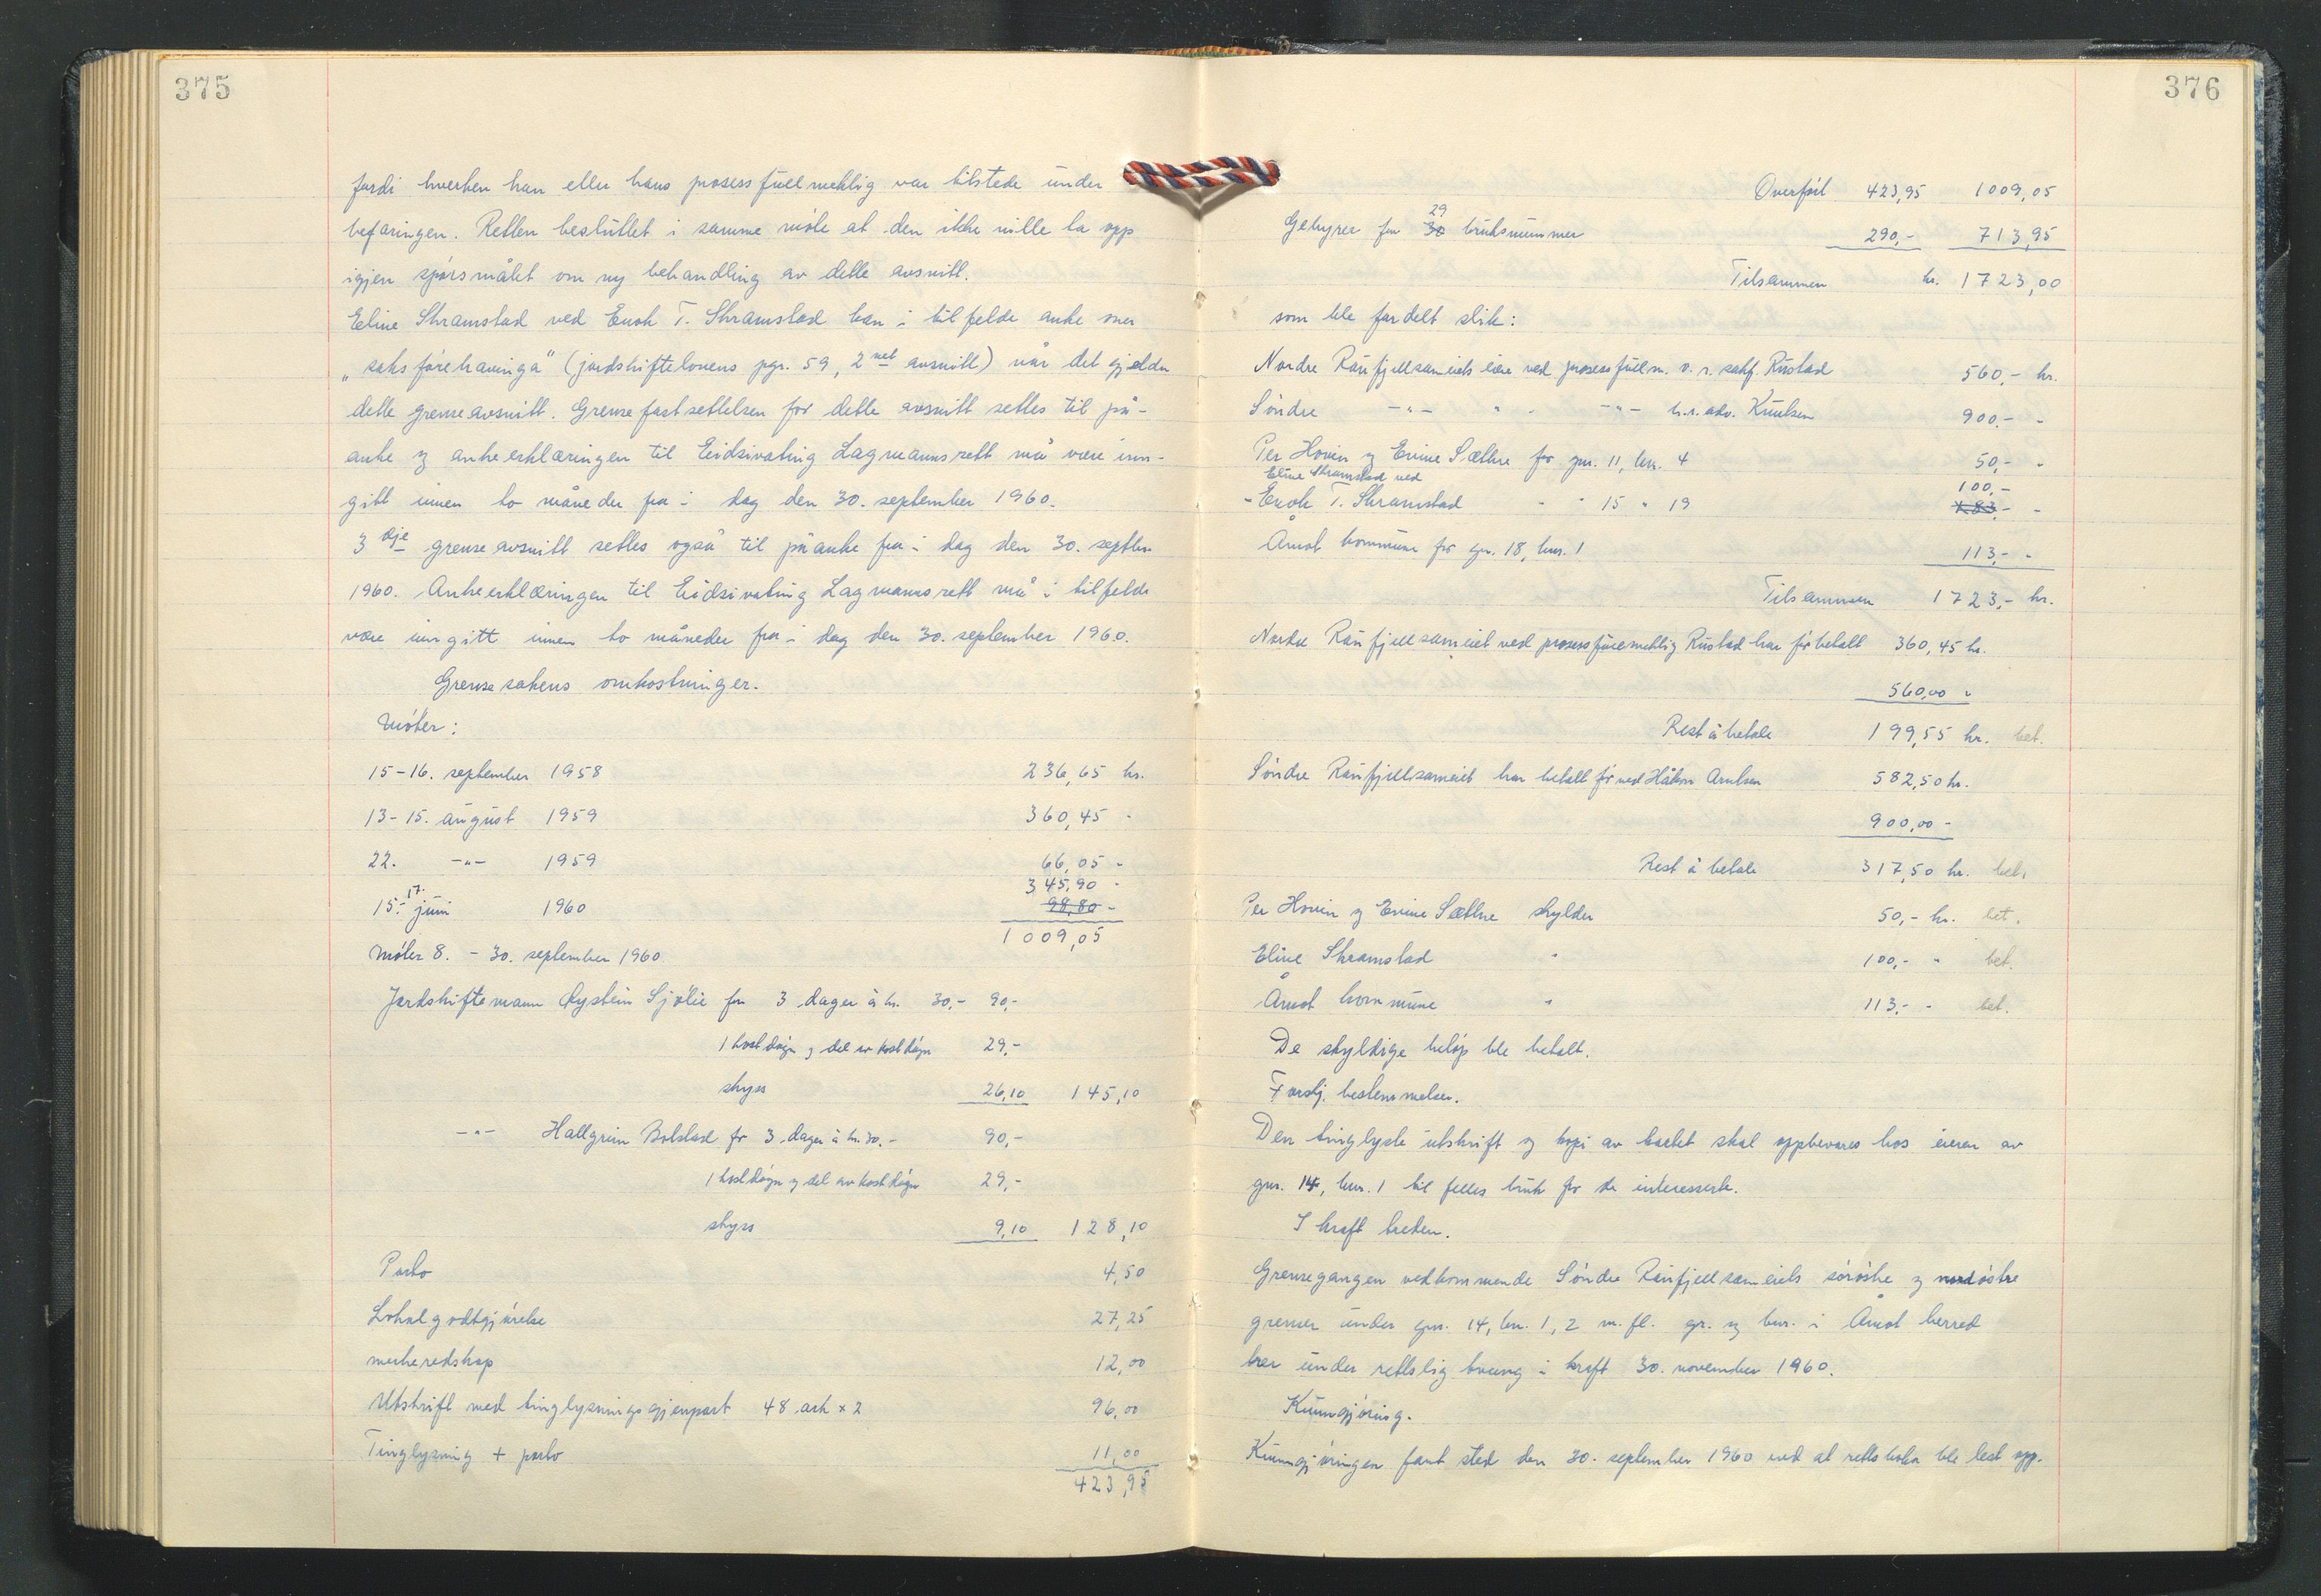 375
fordi hverken han eller hans prosessfullmektig var tilstede under
befaringen. Retten besluttet i samme møte at den ikke ville ta opp
igjen spørsmålet om ny behandling av dette avsnitt.
Eline Skramstad ved Enok T. Skramstad kan i tilfelde anke over
"saksførehavinga" (jordskiftelovens pgr. 59, 2net avsnitt) når det gjelder
dette grenseavsnitt. Grensefastsettelsen for dette avsnitt settes til på-
anke og ankeerklæringen til Eidsivating Lagmannsrett må være inn-
gitt innen to måneder fra i dag den 30. september 1960.
3dje grenseavsnitt settes også til påanke fra i dag den 30. septbr.
1960. Ankeerklæringen til Eidsivating Lagmannsrett må i tilfelde
være inngitt innen to måneder fra i dag den 30. september 1960.
Grensesakens omkostninger.
Møter:
15-16. september 1958 236,65 kr.
13-15. august 1959 360,45 -
22. -"- 1959 66,05 -
345,90 -
15.-17. juni 1960 98,80 -
1009,05
Møter 8. - 30. september 1960.
Jordskiftemann Øystein Sjølie for 3 dager à kr. 30,- 90,-
1 kostdøgn og del av kostdøgn 29,-
skyss 26,10 145,10
-"- Hallgrim Bolstad for 3 dager à kr. 30,- 90,-
1 kostdøgn og del av kostdøgn 29,-
skyss 9,10 128,10
Porto 4,50
Lokalgodtgjørelse 27,25
merkeredskap 12,00
Utskrift med tinglysningsgjenpart 48 ark x 2 96,00
Tinglysning + porto 11,00
423,95
376
Overført 423,95 1009,05
Gebyrer for 30 29 bruksnummer 290,- 713,95
Tilsammen kr. 1723,00
som ble fordelt slik:
Nordre Raufjellsameiets eiere ved prosessfullm. o. r. sakf. Rustad 560,- kr.
Søndre -"- " - -"- h.r. adv. Knutsen 900,- -
Per Hovin og Evine Sæthre for gnr. 11, bnr. 4 50,- -
Eline Skramstad ved 100,-
- Enok T. Skramstad - " 15 " 19 183,- -
Åmot kommune for gnr. 18, bnr. 1 113,- -
Tilsammen 1723,- kr.
Nordre Raufjellsameiet ved prosessfullmektig Rustad har før betalt 360,45 kr.
560,00 "
Rest å betale 199,55 kr. bet.
Søndre Raufjellsameiet har betalt før ved Håkon Arntsen 582,50 kr.
900,00 -
Rest å betale 317,50 kr. bet.
Per Hovin og Evine Sæthre skylder 50,- kr. bet.
Eline Skramstad " 100,- " bet.
Åmot kommune " 113,- - bet.
De skyldige beløp ble betalt.
Forskj. bestemmelser.
Den tinglyste utskrift og kopi av kartet skal oppbevares hos eieren av
gnr. 14, bnr. 1 til felles bruk for de interesserte.
I kraft treden.
Grensegangen vedkommende Søndre Raufjellsameiets sørøstre og nordøstre
grenser under gnr. 14, bnr. 1, 2 m. fl. gr. og bnr. i Åmot herred
trer under rettslig tvang i kraft 30. november 1960.
Kunngjøring.
Kunngjøringen fant sted den 30. september 1960 ved at rettsboka ble lest opp.